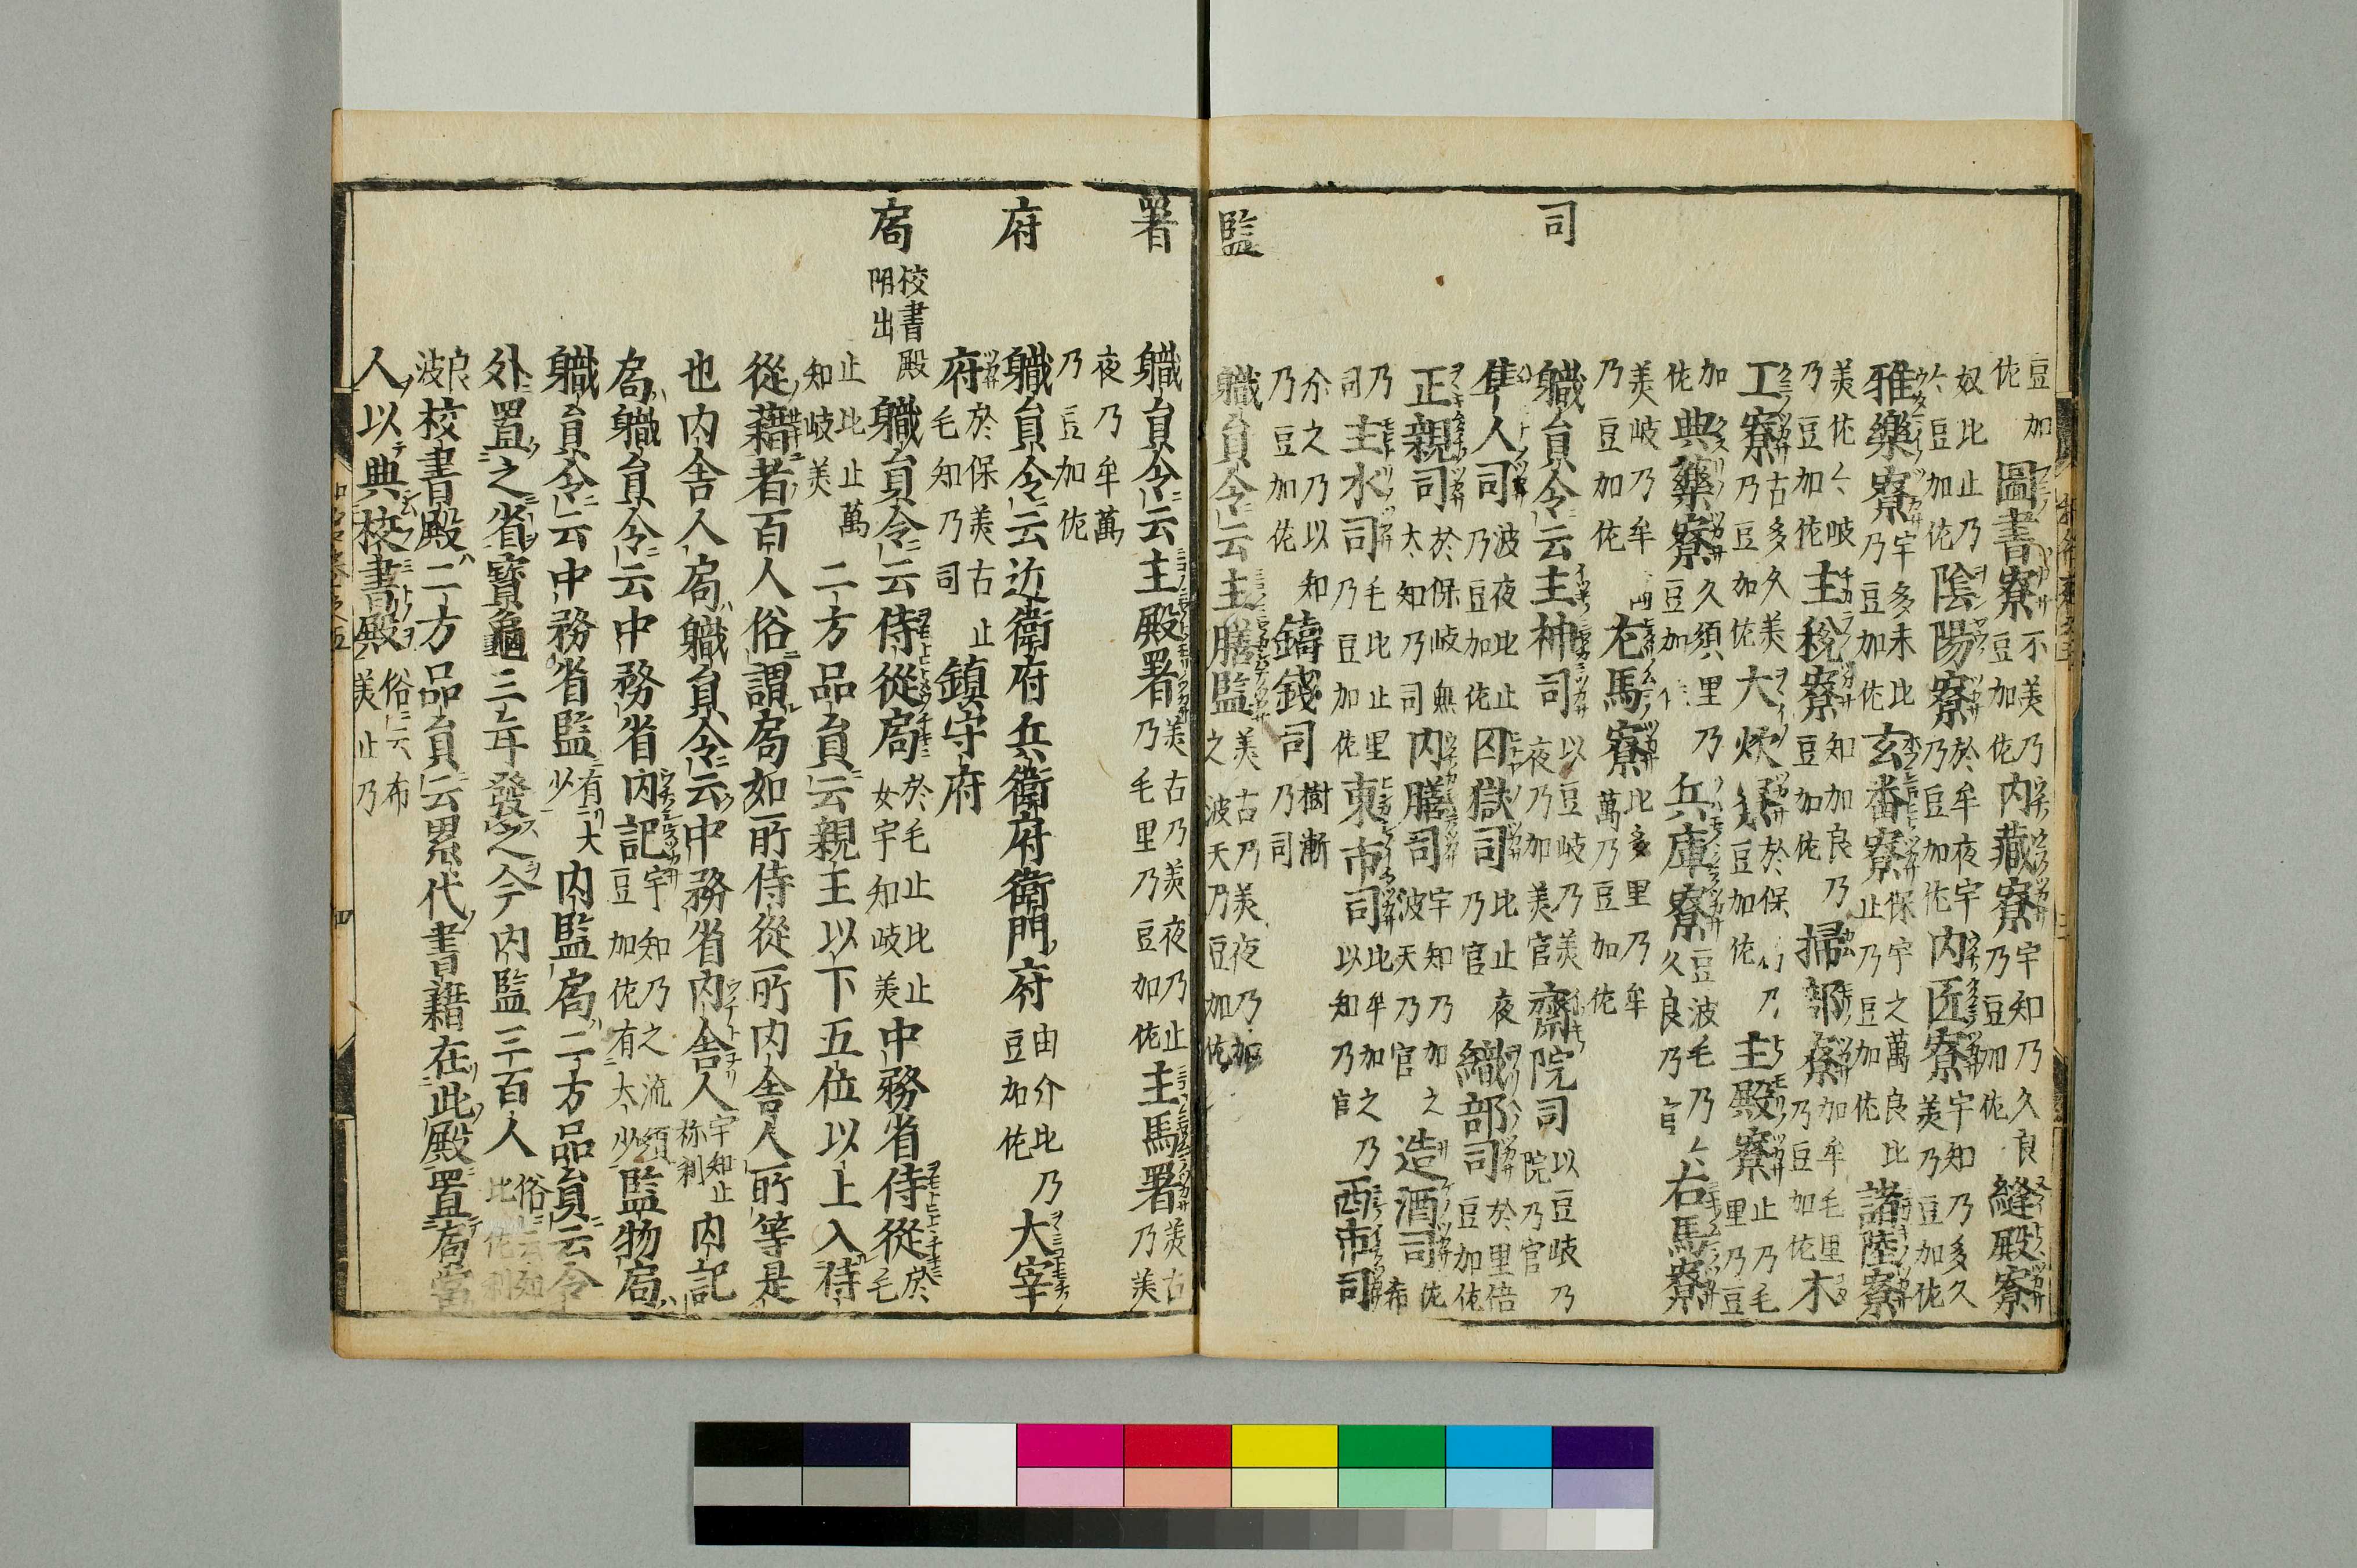 豆加佐 圖書寮 不美乃豆加佐 内藏寮 宇知乃久良乃豆加佐 縫殿寮
奴比止乃豆加佐 陰陽寮 於牟夜宇乃豆加佐 内匠寮 宇知乃多久美乃豆加佐
雅樂寮 宇多末比乃豆加佐 玄蕃寮 保宇之萬良比止乃豆加佐 諸陵寮
美佐々岐乃豆加佐 主税寮 知加良乃豆加佐 掃部寮 加牟毛里乃豆加佐 木
工寮 古多久美乃豆加佐 大炊寮 於保乃豆加佐 主殿寮 止乃毛里乃豆
加佐 典藥寮 久須里乃豆加 兵庫寮 豆波毛乃久良乃官 右馬寮
美岐乃牟乃豆加佐 左馬寮 比多里乃牟萬乃豆加佐
司
軄貟令云主神司 以豆岐乃美夜乃加美官 齋院司 以豆岐乃院乃官
隼人司 波夜比止乃豆加佐 囚獄司 比止夜乃官 織部司 於里倍豆加佐
正親司 於保岐無太知乃司 内膳司 宇知乃加之波天乃官 造酒司 佐希
乃司 主水司 毛比止里乃豆加佐 東市司 比牟加之乃以知乃官 西市司
尒之乃以知乃豆加佐 鑄錢司 樹漸乃司
監
軄貟令云主膳監 美古乃美夜乃加之波天乃豆加佐
署
軄貟令云主殿署 美古乃美夜乃止乃毛里乃豆加佐 主馬署 美古乃美
夜乃牟萬乃豆加佐
府
軄貟令云近衛府兵衛府衛門府 由介比乃豆加佐 大宰
府 於保美古止毛知乃司 鎮守府
局 校書殿附出
軄貟令云侍從局 於毛止比止女宇知岐美 中務省侍從 於毛
止比止萬知岐美 二方品貟云親王以下五位以上入侍
從藉者百人俗謂局如所侍從所内舍人所等是
也内舍人局軄貟令云中務省内舍人 宇知止祢利 内記
局軄貟令云中務省内記 宇知乃之流須豆加佐有大少 監物局
軄貟令云中務省監 有大少 内監局二方品貟云令
外置之省寶龜三年發之今内監三百人 俗云如比佐利
良波 校書殿二方品貟云累代書藉在此殿置局當
人以典校書殿 俗云布美止乃